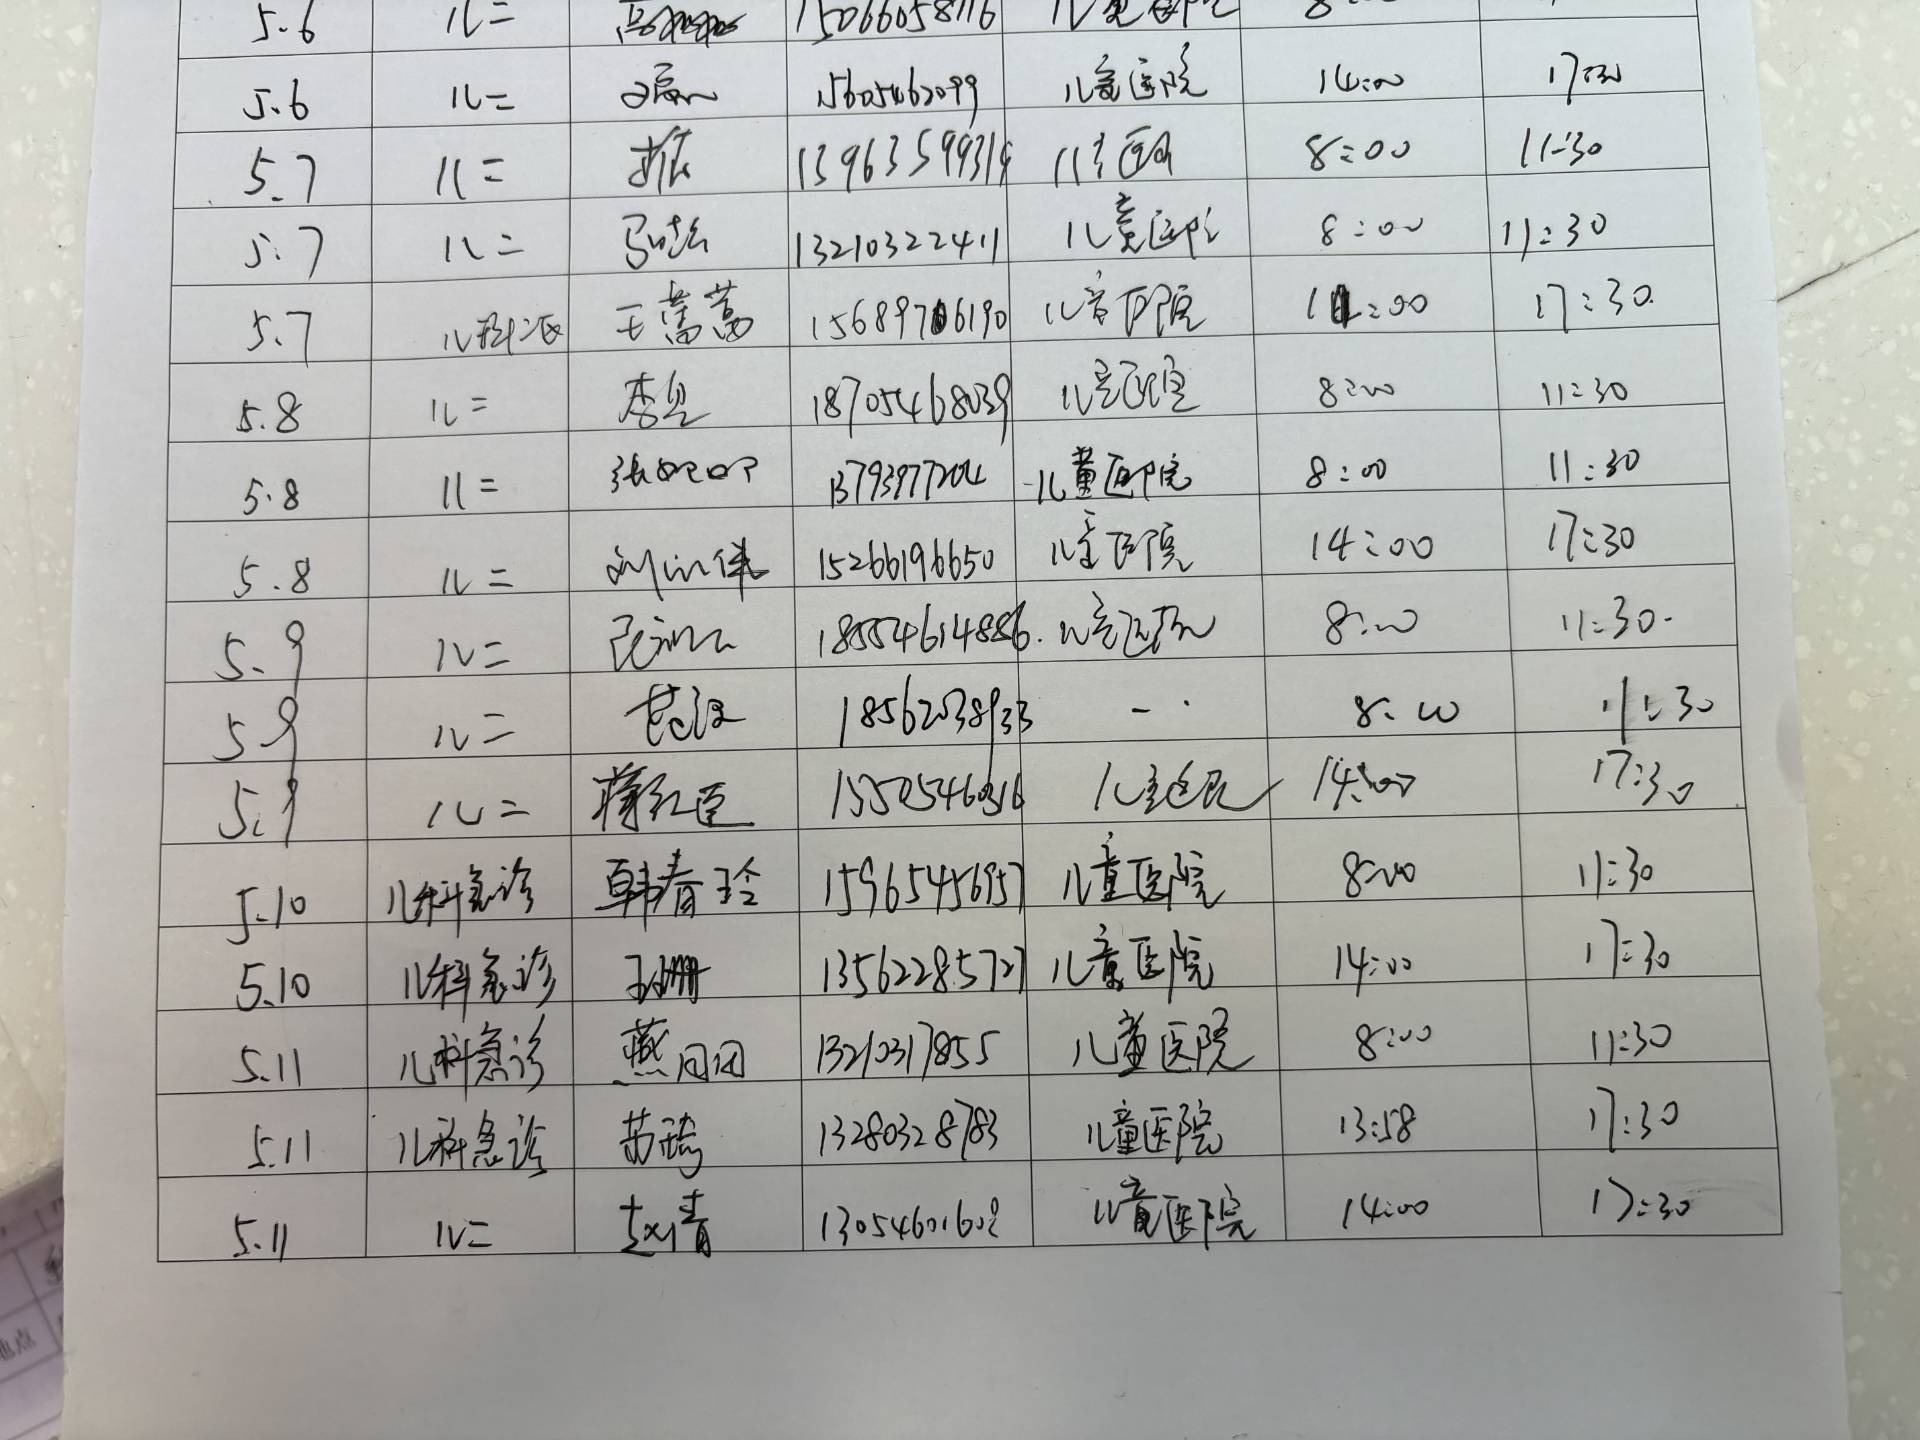 5.6 儿二 15066058116 儿童医院 8:00
5.6 儿二 15605462099 儿童医院 14:00 17:30
5.7 儿二 儿童医院 8:00 11:30
5.7 儿二 13210322411 儿童医院 8:00 11:30
5.7 儿科二区 王蒿蒿 15689706190 儿童医院 17:30
5.8 儿二 18705468039 儿童医院 8:00 11:30
5.8 儿二 儿童医院 8:00 11:30
5.8 儿二 15266196650 儿童医院 14:00 17:30
5.9 儿二 18554614886 儿童医院 8:00 11:30
5.9 儿二 18562038933 8:00 11:30
5.9 儿二 蒋红臣 15505460316 儿童医院 14:00 17:30
5.10 儿科急诊 韩春玲 15965456957 儿童医院 8:00 11:30
5.10 儿科急诊 13562285727 儿童医院 14:00 17:30
5.11 儿科急诊 燕闪闪 13210317855 儿童医院 8:00 11:30
5.11 儿科急诊 13280328783 儿童医院 13:58 17:30
5.11 儿二 赵倩 13054601602 儿童医院 14:00 17:30
地点